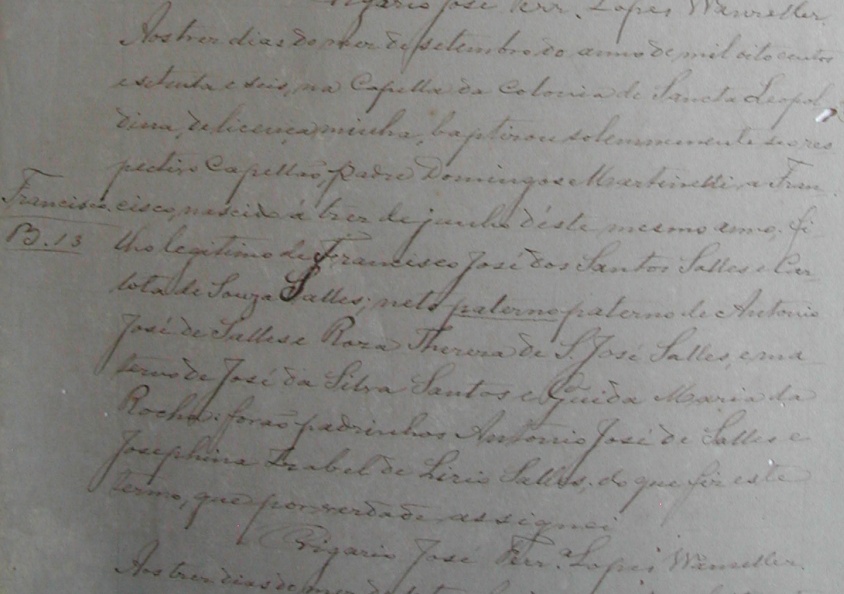 Vigario José Ferr.ª Lopes Wanzeller
Aos trez dias do mez de setembro do anno de mil oitocentos
e setenta e seis, na Capella da Colonia de Sancta Leopol
dina, de licença minha, baptizou solemnemente seo res
pectivo Capellão, Padre Domingos Martinetti, a Fran
Francisco. cisco, nascido á trez de junho d'este mesmo anno, fi
B. 13 lho legitimo de Francisco José dos Santos Salles e Car
lota de Souza Salles; neto paterno paterno de Antonio
José de Salles e Roza Thereza de S. José Salles, e ma
terno de José da Silva Santos e Guida Maria da
Rocha. forão padrinhos Antonio José de Salles e
Josephina Izabel de Lirio Salles; do que fiz este
termo, que por verdade assignei
Vigario José Ferr.ª Lopes Wanzeller.
Aos trez dias do mez de